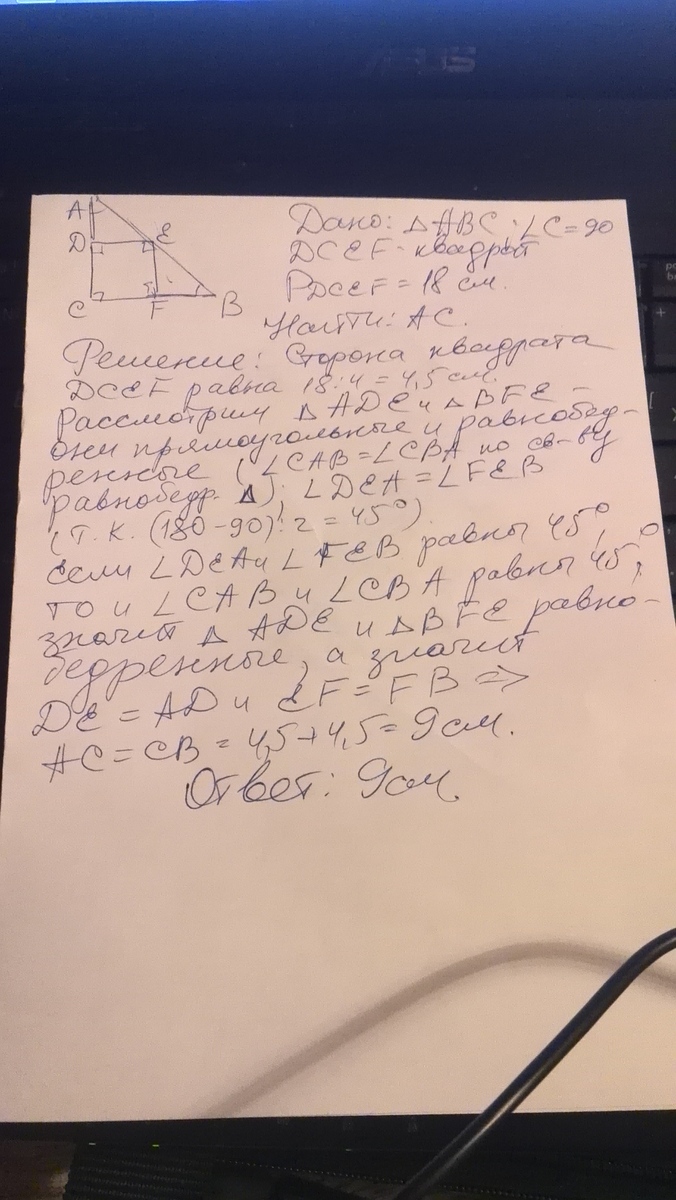 ASUS
A
D
E
C
F
B
Дано: △ABC; ∠C=90
DCEF - квадрат
PDCEF = 18 см.
Найти: AC.
Решение: Сторона квадрата
DCEF равна 18:4 = 4,5 см.
Рассмотрим △ADE и △BFE -
они прямоугольные и равнобед-
ренные (∠CAB=∠CBA по св-ву
равнобедр. △); ∠DEA=∠FEB
(т.к. (180-90):2=45°)
если ∠DEA и ∠FEB равны 45°,
то и ∠CAB и ∠CBA равны 45°,
значит △ADE и △BFE равно-
бедренные, а значит
DE = AD и EF = FB =>
AC = CB = 4,5+4,5=9 см.
Ответ: 9 см.